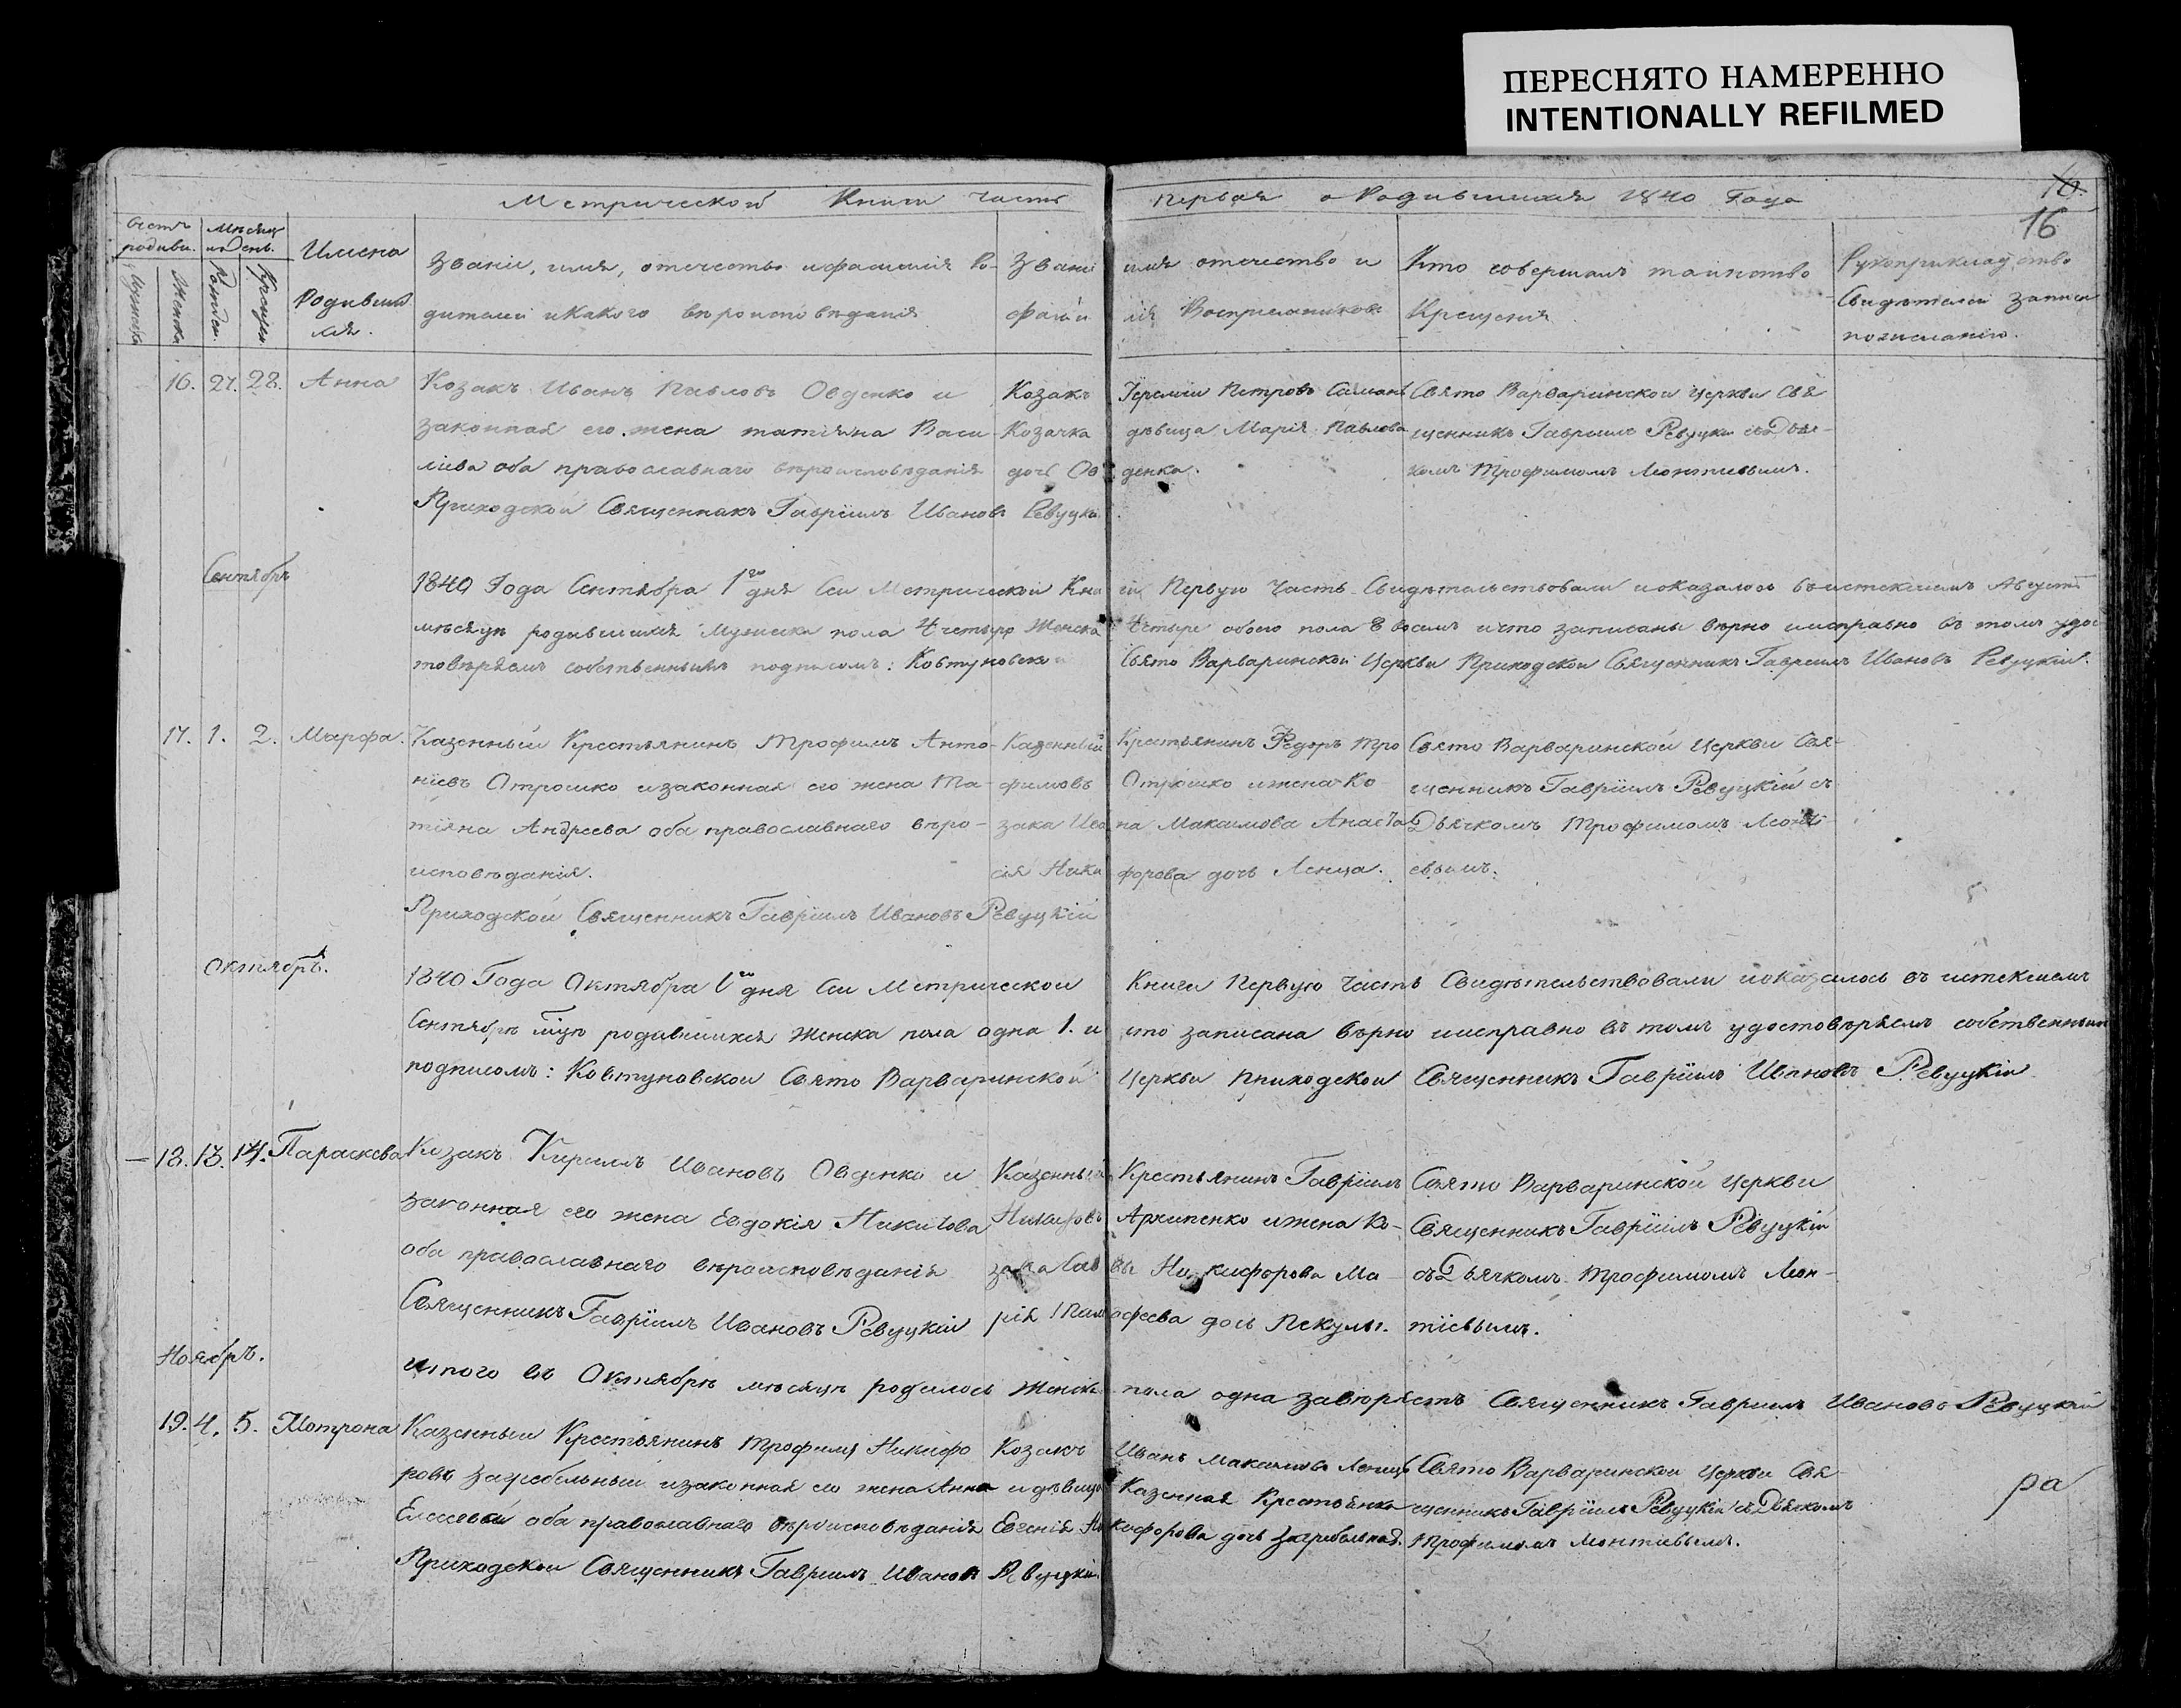 ПЕРЕСНЯТО НАМЕРЕННО
INTENTIONALLY REFILMED
Метрической Книги часть первая о Родившихся 1840 Года
16
16
Счетъ родивш.
Мѣсяцъ и День.
Имена Родивших ся.
Званіе, имя, отечество и фамилія Ро-
дителей и какого вѣроисповѣданія
Звані имя отечество и
фами лія Воспріемниковъ
Кто совершалъ таинство
Крещенія
Рукоприкладство
Свидѣтелей записи
по желанію.
16. 27. 28. Анна
Козакъ Иванъ Павловъ Овденко и
законная его жена татіяна Васи-
ліева оба православнаго вѣроисповѣданія
Козакъ Іеремій Петровъ
Козачка дѣвица Марія Павлова
дочь Ов денка.
Свято Варваринской Церкви Свя
щенникъ Гавріилъ Ревуцкій съ Дья-
комъ Трофимомъ Леонтиевымъ.
Приходской Священникъ Гавріилъ Ивановъ Ревуцкі
Сентябрь
1840 Года Сентября 1го дня Сей Метрической Кни ги Первую Часть Свидѣтельствовали и оказалось въ истекшемъ Августѣ
мѣсяцѣ родившихся Мужеска пола Четыре Женска Четыре обоего пола 8 восемь и что записаны вѣрно и исправно въ томъ удос
товѣряемъ собственнымъ подписомъ: Ковтуновской Свято Варваринской Церкви Приходской Священникъ Гавріилъ Ивановъ Ревуцкій.
17. 1. 2. Марфа.
Казенный Крестьянинъ Трофимъ Анто-
ніевъ Отрошко и законная его жена Та-
тіяна Андреева оба православнаго вѣро-
исповѣданія.
Казенный Крестьянинъ Федоръ Тро
фимовъ Отрошко и жена Ко
зака Ива на Максимова Анаста
сія Ники форова дочь Ленца.
Свято Варваринской Церкви Свя-
щенникъ Гавріилъ Ревуцкій съ
Дьячкомъ Трофимомъ Леонті-
евымъ.
Приходской Священникъ Гавріилъ Ивановъ Ревуцкій
Октябрь.
1840 Года Октября 1го дня Сей Метрической Книги Первую Часть Свидѣтельствовали и оказалось въ истекшемъ
Сентябрѣ мцѣ родившихся Женска пола одна 1. и что записана вѣрно и исправно въ томъ удостовѣряемъ собственнымъ
подписомъ: Ковтуновской Свято Варваринской Церкви Приходской Священникъ Гавріилъ Ивановъ Ревуцкій
18. 13. 14. Параскева
Козакъ Кириллъ Ивановъ Овденко и
законная его жена Евдокія Никитова
оба православнаго вѣроисповѣданія
Казенный Крестьянинъ Гавріилъ
Архипенко и жена Ко-
зака Сав вы Никифорова Ма-
рія офеева дочь
Свято Варваринской Церкви
Священникъ Гавріилъ Ревуцкій
съ Дьячкомъ Трофимомъ Леон-
тіевымъ.
Священникъ Гавріилъ Ивановъ Ревуцкій
Ноябрь.
итого въ Октябрѣ мѣсяцѣ родилось Женска пола одна завѣряетъ Священникъ Гавріилъ Ивановъ Ревуцкій
19. 4. 5. Мотрона
Казенный Крестьянинъ Трофимъ Никифо
ровъ Загребельный и законная его жена Анна
Елесеева оба православнаго вѣроисповѣданія
Козакъ Иванъ Максимовъ Ленецъ
и дѣвица Казенная Крестьянка
Евгенія Ни кифорова дочь Загребельная.
Свято Варваринской Церкви Свя-
щенникъ Гавріилъ Ревуцкій съ Дьячкомъ
Трофимомъ Леонтиевымъ.
ра
Приходской Священникъ Гавріилъ Ивановъ Ревуцкій.